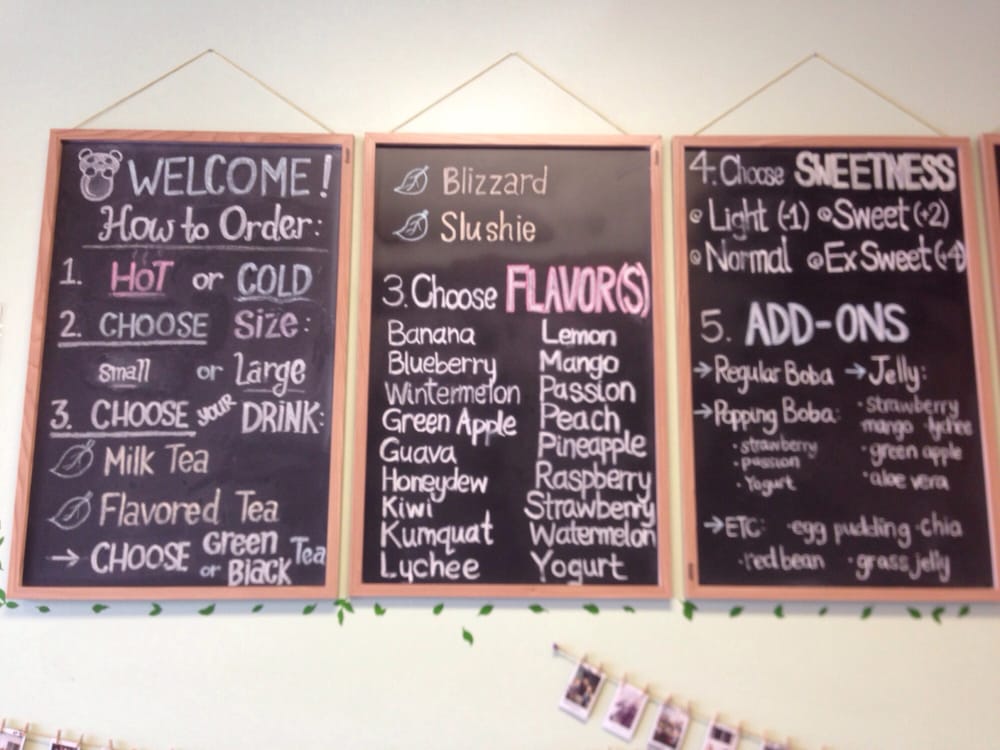 WELCOME!
How to Order:
1. HOT or COLD
2. CHOOSE SIZE:
small or Large
3. CHOOSE YOUR DRINK:
Milk Tea
Flavored Tea
→ CHOOSE Green or Black Tea
Blizzard
Slushie
3. Choose FLAVOR(S)
Banana
Blueberry
Wintermelon
Green Apple
Guava
Honeydew
Kiwi
Kumquat
Lychee
Lemon
Mango
Passion
Peach
Pineapple
Raspberry
Strawberry
Watermelon
Yogurt
4. Choose SWEETNESS
Light (-1) Sweet (+2)
Normal Ex Sweet (+4)
5. ADD-ONS
→ Regular Boba
→ Popping Boba:
· strawberry
· passion
· Yogurt
→ Jelly:
· strawberry
mango · lychee
· green apple
· aloe vera
→ ETC: · egg pudding · chia
· red bean · grass jelly